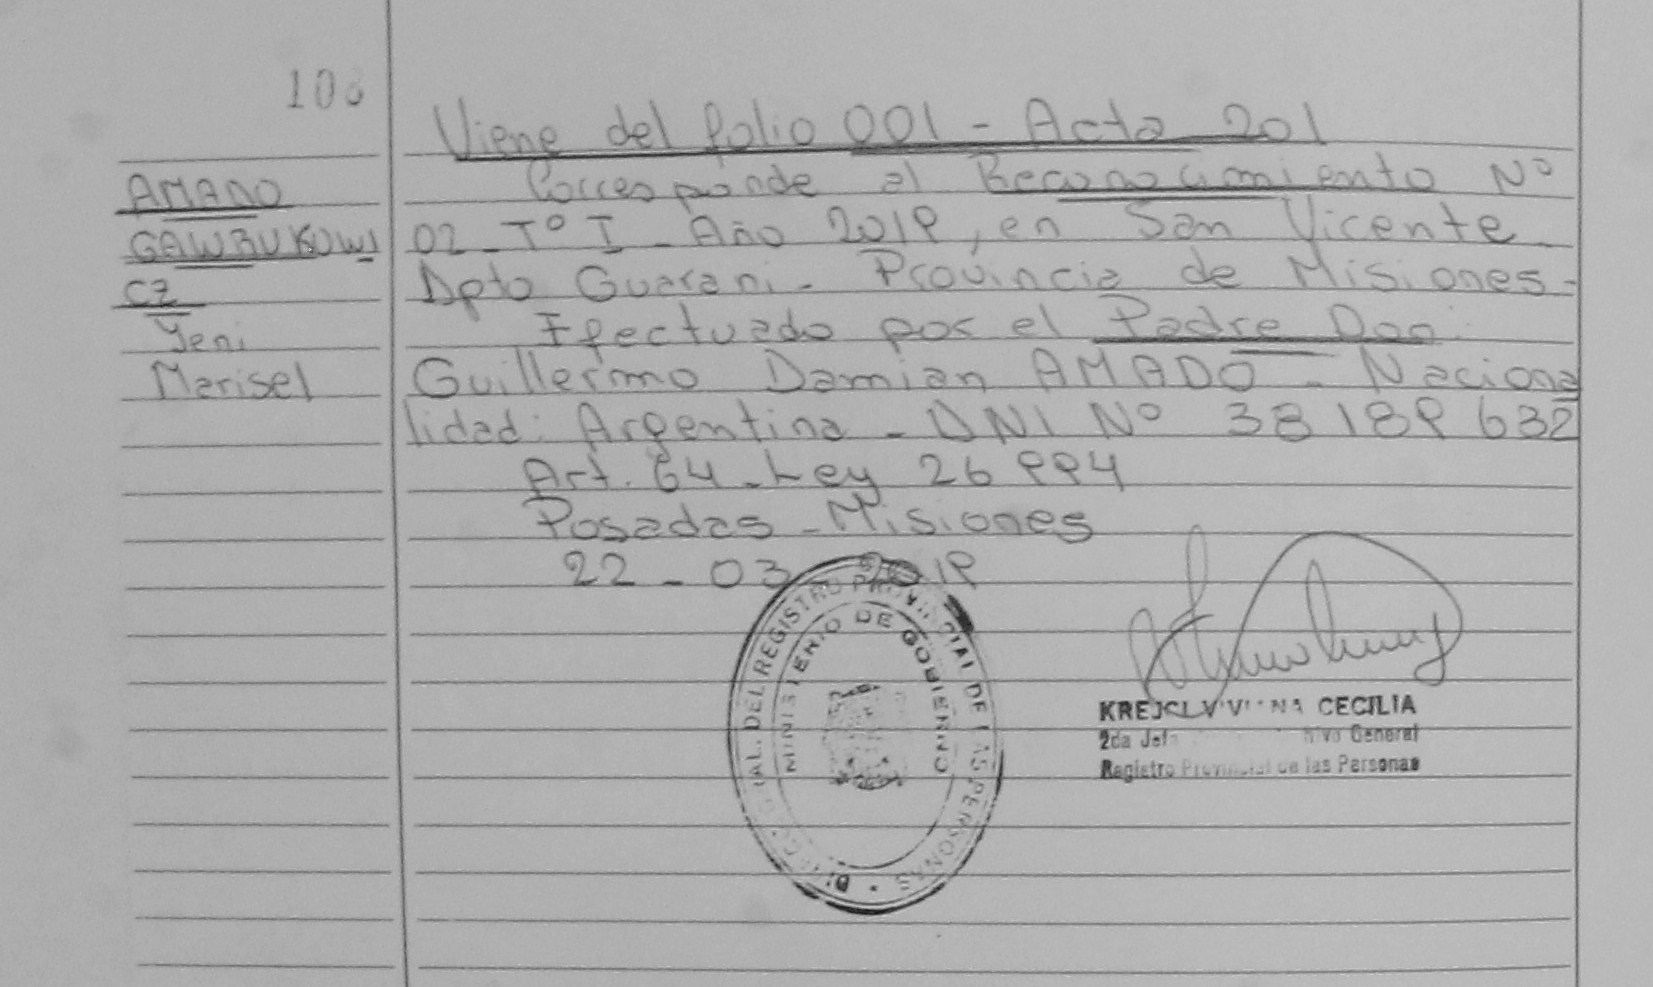 Viene del folio 001 - Acta 201
Corresponde al Reconocimiento Nº
02 - Tº I - Año 2019, en San Vicente
Dpto Guarani - Provincia de Misiones -
Efectuado por el Padre Don:
Guillermo Damian AMADO - Naciona
lidad: Argentina - DNI Nº 38 189 632
Art. 64 - Ley 26 994
Posadas - Misiones
22 - 03 - 2019
AMADO
GAWBUKOWI
CZ
Yeni
Marisel
DEL REGISTRO PROVINCIAL DE LAS PERSONAS
MINISTERIO DE GOBIERNO
KREJCI VIVIANA CECILIA
2da General
Registro Provincial de las Personas